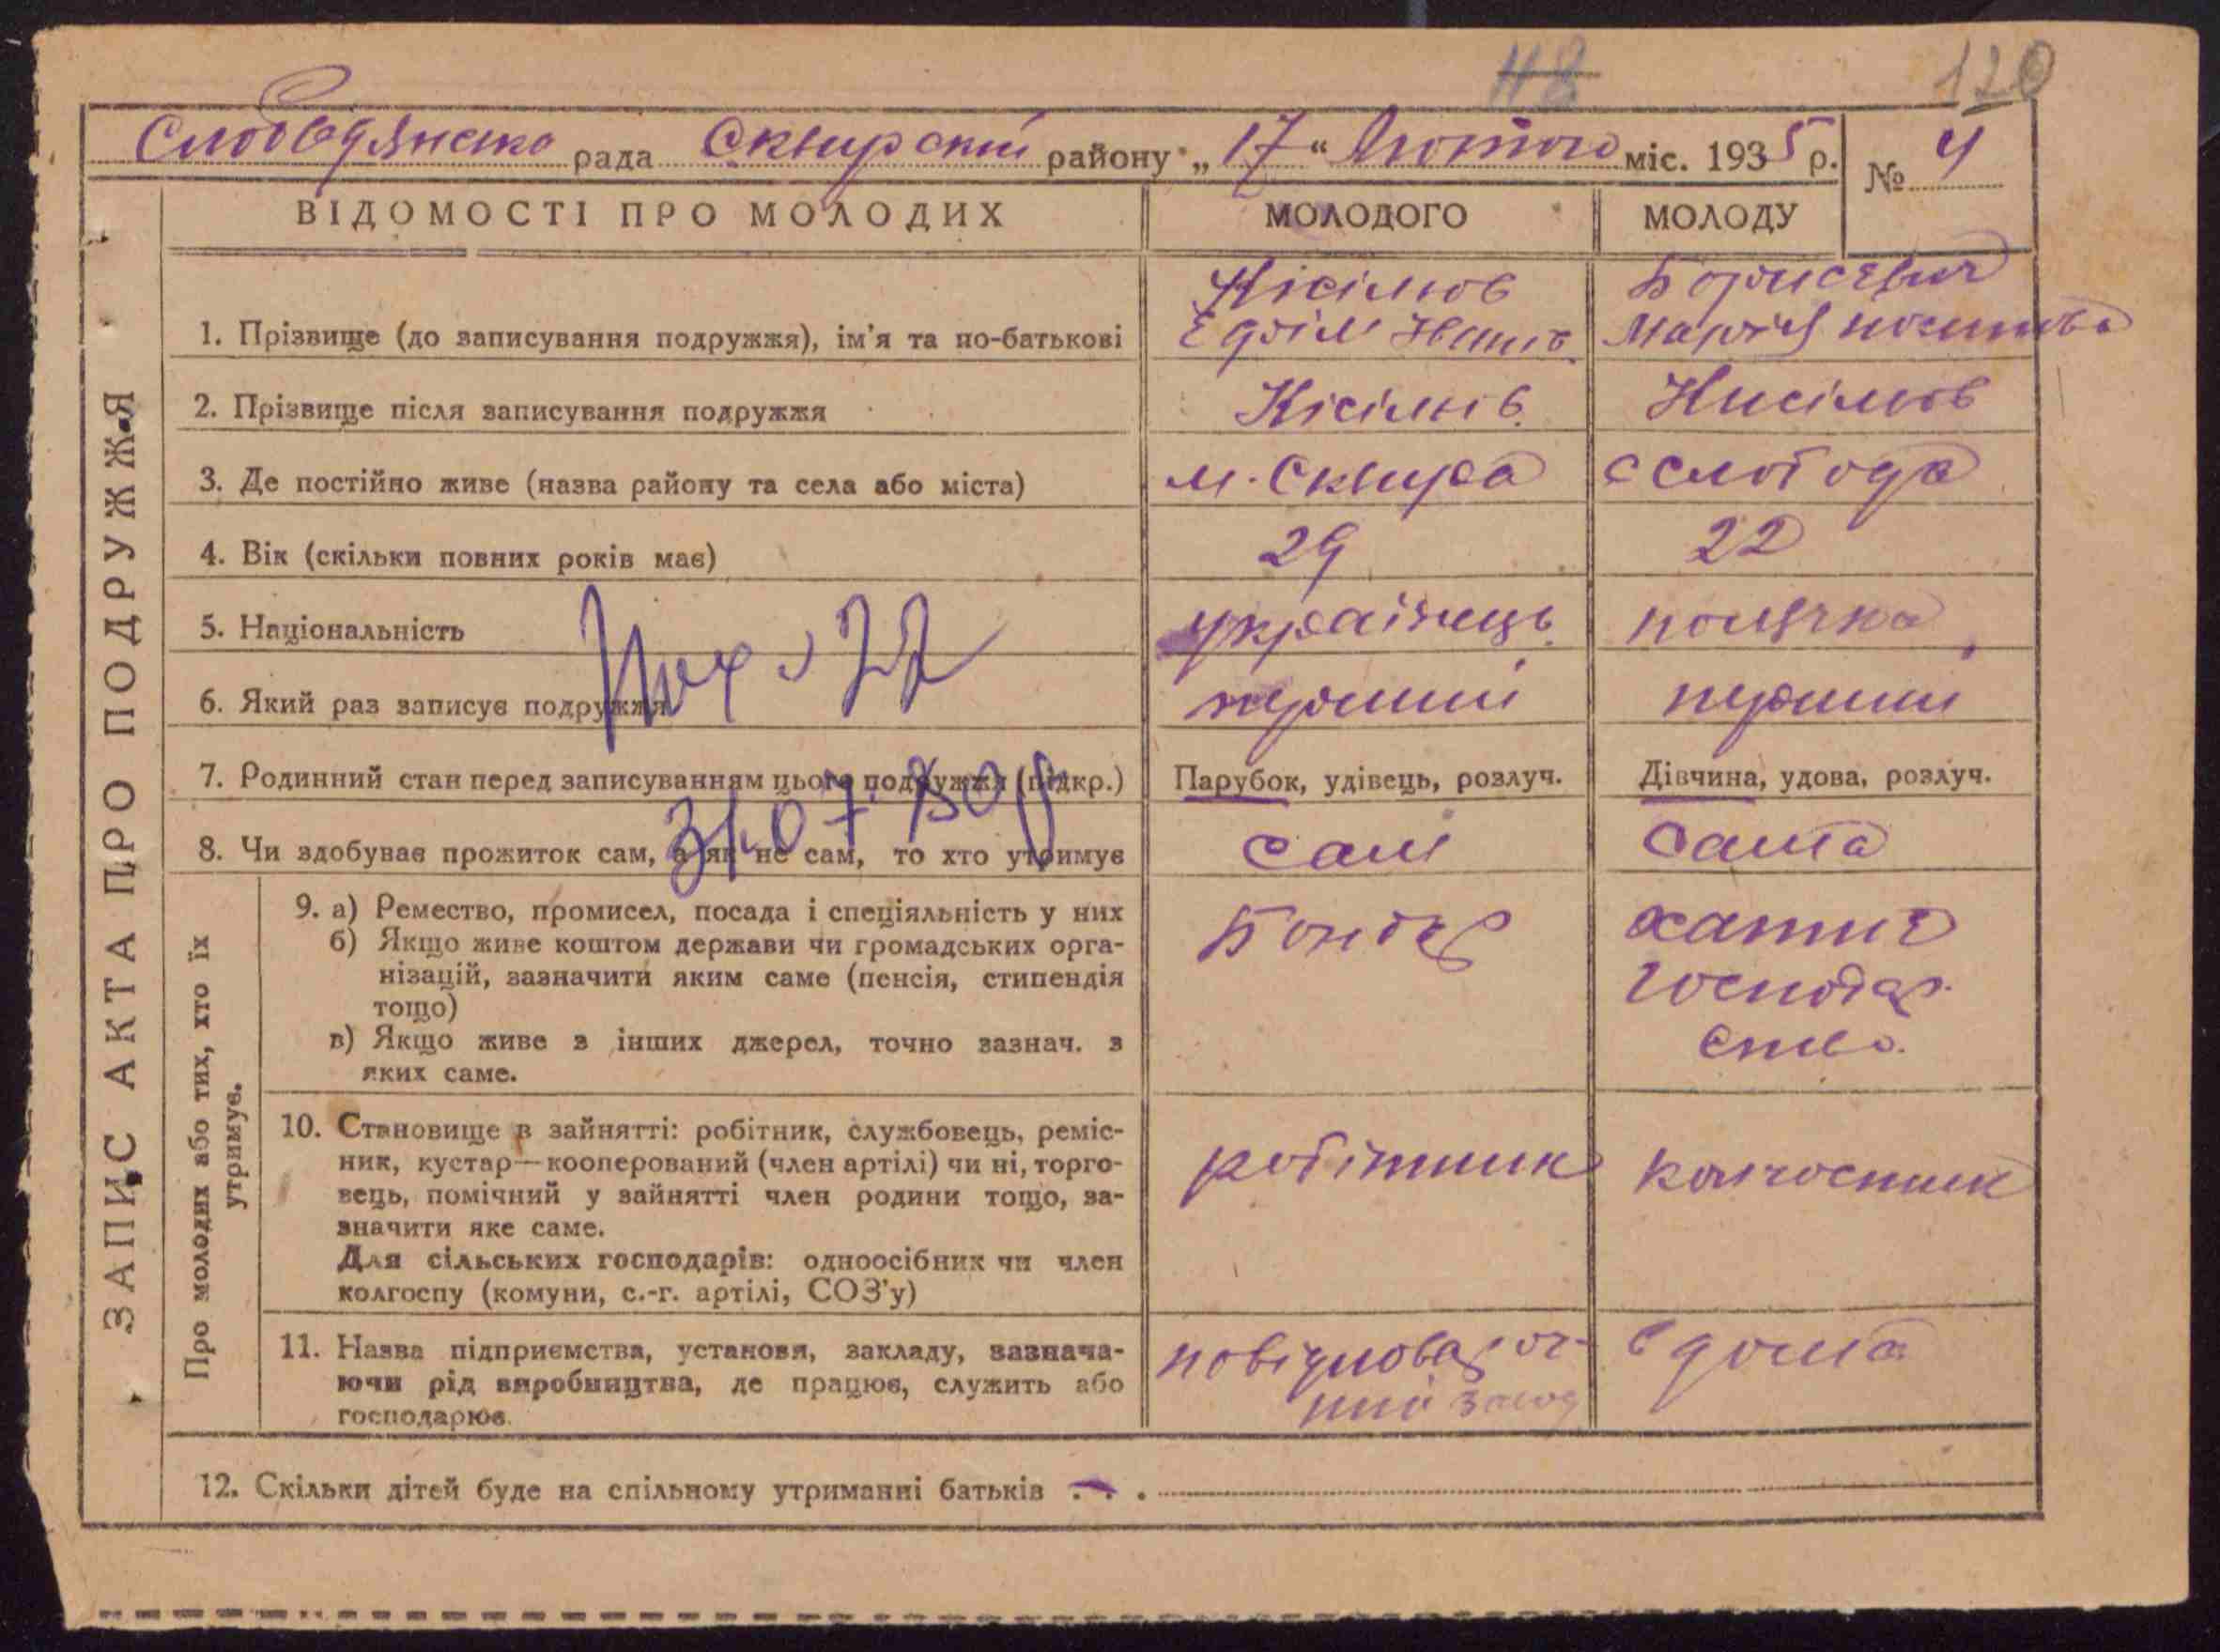 118 120
Слободянська рада Сквирский району „17“ Лютого міс. 1935 р. № 4
ВІДОМОСТІ ПРО МОЛОДИХ МОЛОДОГО МОЛОДУ
ЗАПИС АКТА ПРО ПОДРУЖЖЯ
Кісільов Борисевич
1. Прізвище (до записування подружжя), ім'я та по-батькові Іванів Марія
2. Прізвище після записування подружжя Кісільов Кисільов
3. Де постійно живе (назва району та села або міста) м. Сквира с Слобода
4. Вік (скільки повних років має) 29 22
5. Національність українець полячка
6. Який раз записує подружжя перший перший
7. Родинний стан перед записуванням цього подружжя (підкр.) Парубок, удівець, розлуч. Дівчина, удова, розлуч.
8. Чи здобуває прожиток сам, а як не сам, то хто утримує сам сама
Про молодих або тих, хто їх
утримує.
9. а) Ремество, промисел, посада і спеціяльність у них Бондар хатнє
б) Якщо живе коштом держави чи громадських орга-
нізацій, зазначити яким саме (пенсія, стипендія господар
тощо)
в) Якщо живе з інших джерел, точно зазнач. з ство.
яких саме.
10. Становище в зайнятті: робітник, службовець, реміс-
ник, кустар—кооперований (член артілі) чи ні, торго- робітник колгоспник
вець, помічний у зайнятті член родини тощо, за-
значити яке саме.
Для сільських господарів: одноосібник чи член
колгоспу (комуни, с.-г. артілі, СОЗ'у)
11. Назва підприємства, установи, закладу, зазнача- дома
ючи рід виробництва, де працює, служить або завод
господарює.
12. Скільки дітей буде на спільному утриманні батьків . . .